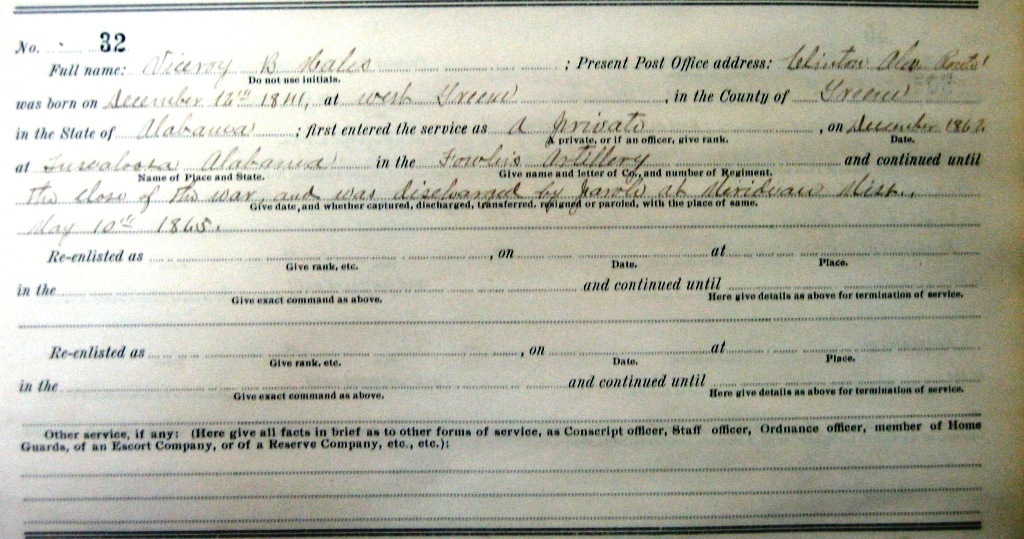 No. 32
Full name: Viceroy B Hales ; Present Post Office address: Clinton Ala
Do not use initials.
was born on December 12th 1841, at west Greene , in the County of Greene
in the State of Alabama ; first entered the service as a private , on December 1862
A private, or if an officer, give rank. Date.
at Tuscaloosa Alabama in the Fowlkis Artillery and continued until
Name of Place and State. Give name and letter of Co., and number of Regiment.
the close of the war, and was discharged by parole at Meridean Miss.,
Give date, and whether captured, discharged, transferred, resigned or paroled, with the place of same.
May 10th 1865.
Re-enlisted as , on at
Give rank, etc. Date. Place.
in the and continued until
Give exact command as above. Here give details as above for termination of service.
Re-enlisted as , on at
Give rank, etc. Date. Place.
in the and continued until
Give exact command as above. Here give details as above for termination of service.
Other service, if any: (Here give all facts in brief as to other forms of service, as Conscript officer, Staff officer, Ordnance officer, member of Home
Guards, of an Escort Company, or of a Reserve Company, etc., etc.):